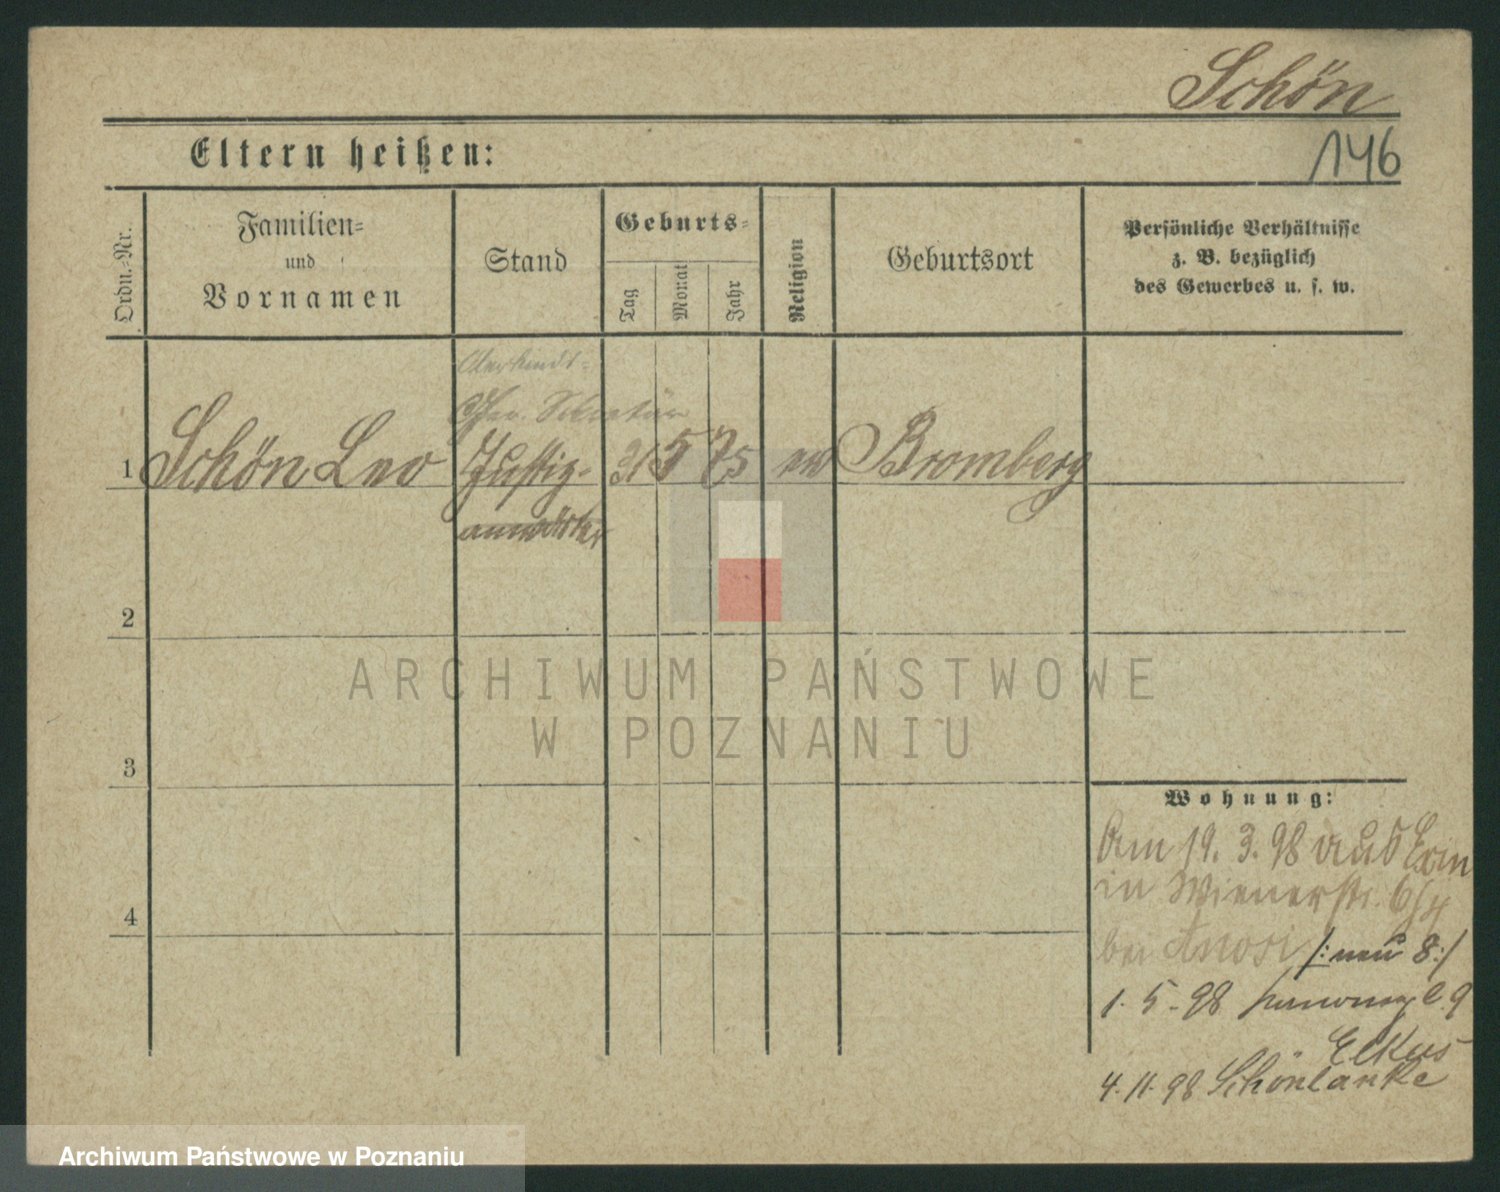 Schön
146
Eltern heißen:
Ordn.-Nr.
Familien-
und
Vornamen
Stand
Geburts-
Tag
Monat
Jahr
Religion
Geburtsort
Persönliche Verhältnisse
z. B. bezüglich
des Gewerbes u. s. w.
Ger. Sekretär
1 Schön Leo Justiz- 31 5 75 ev Bromberg
anwärter
2
3
4
Wohnung:
Am 19. 3. 98 aus Exin
in Wienerstr. 6/4
bei /: neu 8:/
1. 5. 98
Elkus
4. 11. 98 Schönlanke
ARCHIWUM PAŃSTWOWE
W POZNANIU
Archiwum Państwowe w Poznaniu